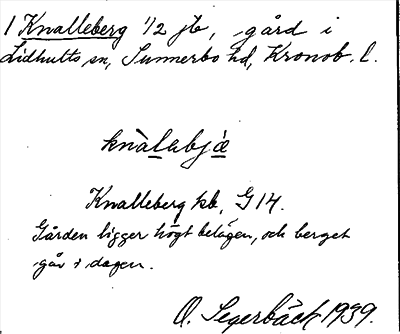 1 Knalleberg 1/2 jb, gård i
Lidhults sn, Sunnerbo hd, Kronob. l.
knàlabjæ̀
Knalleberg kb, G 14.
Gården ligger högt belägen, och berget
går i dagen.
O. Segerbäck 1939.